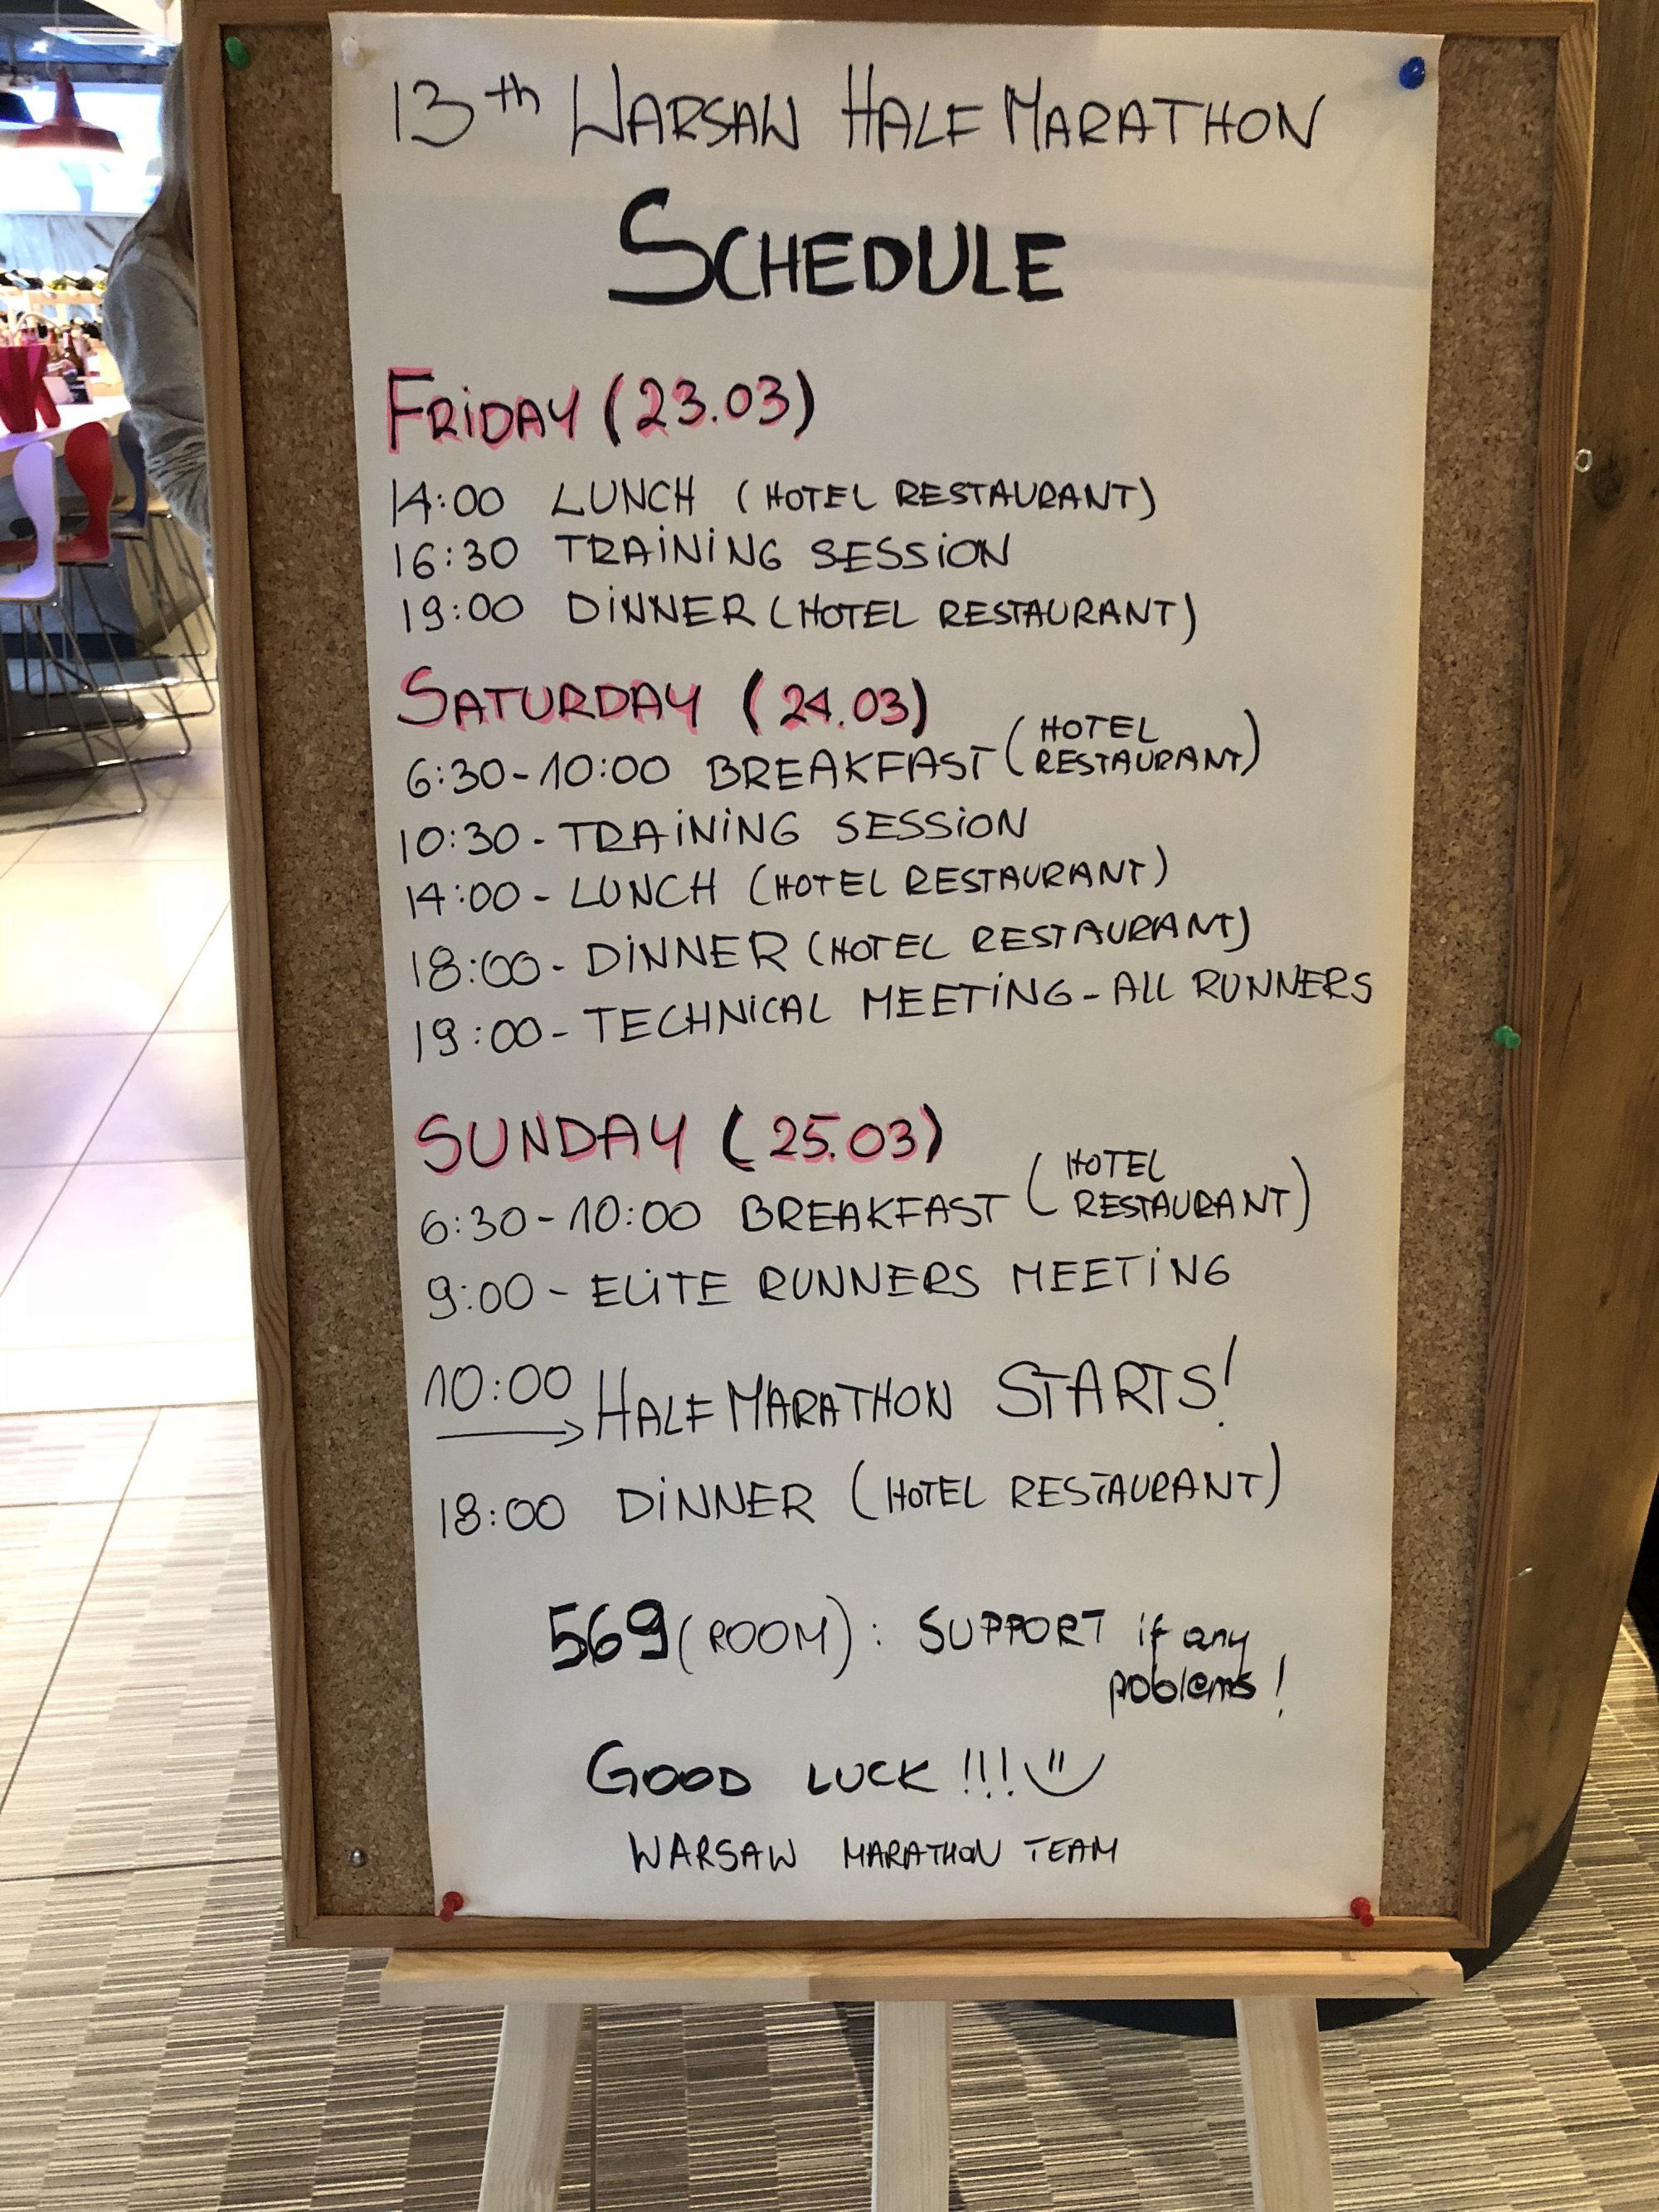 13th WARSAW HALF MARATHON
SCHEDULE
FRiDAY (23.03)
14:00 LUNCH (HOTEL RESTAURANT)
16:30 TRAiNiNG SESSiON
19:00 DiNNER (HOTEL RESTAURANT)
SATURDAY (24.03)
6:30-10:00 BREAKFAST (HOTEL
RESTAURANT)
10:30 - TRAiNiNG SESSiON
14:00 - LUNCH (HOTEL RESTAURANT)
18:00 - DiNNER (HOTEL RESTAURANT)
19:00 - TECHNiCAL MEETiNG - ALL RUNNERS
SUNDAY (25.03)
6:30-10:00 BREAKFAST (HOTEL
RESTAURANT)
9:00 - ELiTE RUNNERS MEETiNG
10:00 → HALF MARATHON STARTS!
18:00 DiNNER (HOTEL RESTAURANT)
569 (ROOM): SUPPORT if any
poblems!
GOOD LUCK !!! :)
WARSAW MARATHON TEAM